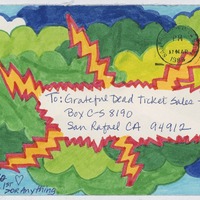 PM
To: Grateful Dead Ticket Sales
Box C-S 8190
San Rafael CA 94912
1st
for Anything